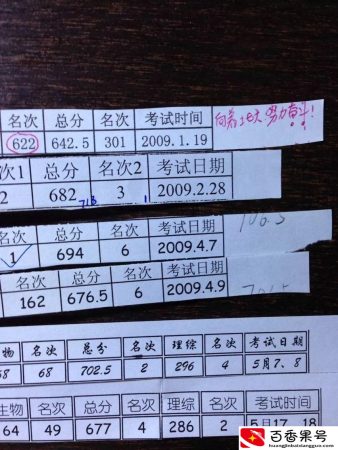 名次 总分 名次 考试时间 向着北大努力奋斗！
622 642.5 301 2009.1.19
次1 总分 名次2 考试日期
2 682 713 3 1 2009.2.28
名次 总分 名次 考试日期
1 694 6 2009.4.7
名次 总分 名次 考试日期
162 676.5 6 2009.4.9
物 名次 总分 名次 理综 名次 考试日期
68 68 702.5 2 296 4 5月7、8
生物 名次 总分 名次 理综 名次 考试时间
64 49 677 4 286 2 5月17、18
百香果号
huanglinbaixiangguo.com